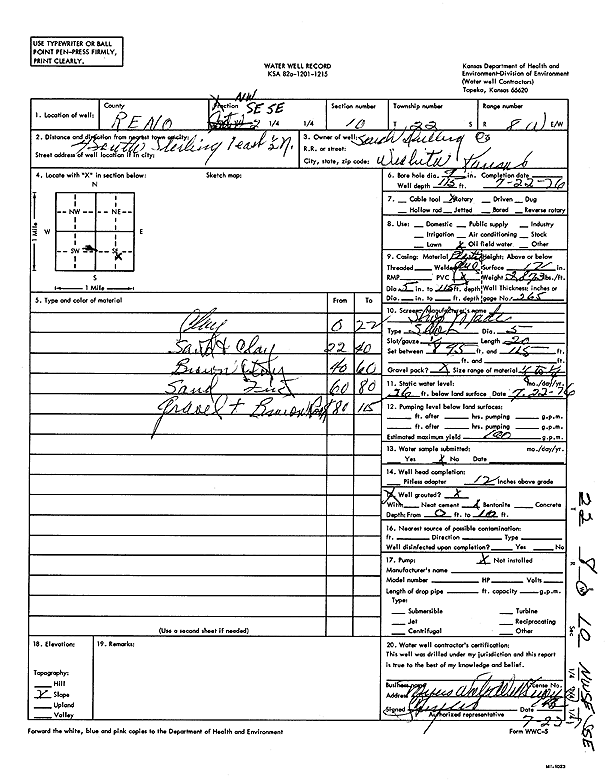 USE TYPEWRITER OR BALL
POINT PEN-PRESS FIRMLY,
PRINT CLEARLY.
WATER WELL RECORD
KSA 82a-1201-1215
Kansas Department of Health and
Environment-Division of Environment
(Water well Contractors)
Topeka, Kansas 66620
1. Location of well:
County
RENO
Fraction NW SE SE
1/4 1/4
Section number
10
Township number
T 22 S
Range number
R 8 (W) E/W
2. Distance and direction from nearest town or city:
4 South Sterling 1 east
Street address of well location if in city:
3. Owner of well: Drilling Co
R.R. or street:
City, state, zip code: Wichita Kansas
4. Locate with "X" in section below:
Sketch map:
N
NW NE
W E
SW SE X
S
1 Mile
1 Mile
6. Bore hole dia. 9 in. Completion date
Well depth 115 ft. 7-22-76
7. Cable tool X Rotary Driven Dug
Hollow rod Jetted Bored Reverse rotary
8. Use: Domestic Public supply Industry
Irrigation Air conditioning Stock
Lawn X Oil field water Other
9. Casing: Material Plastic Height: Above or below
Threaded Welded Surface 12 in.
RMP PVC X Weight lbs./ft.
Dia. 5 in. to 115 ft. depth Wall Thickness: inches or
Dia. in. to ft. depth gage No. .265
5. Type and color of material From To
Clay 0 22
Sand & Clay 22 40
Brown Clay 40 60
Sand Fine 60 80
Gravel + Brown 80 115
(Use a second sheet if needed)
10. Screen: Manufacturer's name
Shop Made
Type Dia. 5
Slot/gauze Length 20
Set between 95 ft. and 115 ft.
ft. and ft.
Gravel pack? X Size range of material
11. Static water level: mo./day/yr.
36 ft. below land surface Date 7-22-76
12. Pumping level below land surfaces:
ft. after hrs. pumping g.p.m.
ft. after hrs. pumping g.p.m.
Estimated maximum yield 100 g.p.m.
13. Water sample submitted: mo./day/yr.
Yes X No Date
14. Well head completion:
Pitless adapter 12 inches above grade
15. Well grouted? X
With: Neat cement X Bentonite Concrete
Depth: From 0 ft. to 10 ft.
16. Nearest source of possible contamination:
ft. Direction Type
Well disinfected upon completion? Yes No
17. Pump: X Not installed
Manufacturer's name
Model number HP Volts
Length of drop pipe ft. capacity g.p.m.
Type:
Submersible Turbine
Jet Reciprocating
Centrifugal Other
18. Elevation:
19. Remarks:
Topography:
Hill
X Slope
Upland
Valley
20. Water well contractor's certification:
This well was drilled under my jurisdiction and this report
is true to the best of my knowledge and belief.
Business name License No.
Address
Signed Date
Authorized representative 7-23
Forward the white, blue and pink copies to the Department of Health and Environment
Form WWC-5
22
R 8 W
Sec 10
1/4 1/4 1/4 NWSE SE